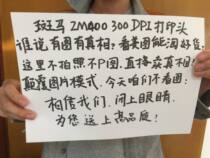 斑马 ZM400 300DPI 打印头
谁说有图有真相，看美图能淘好货
这里不拍照不P图，直播卖真相！
颠覆图片模式，今天咱们不看图：
相信我们，闭上眼睛，
为您送上高品质！